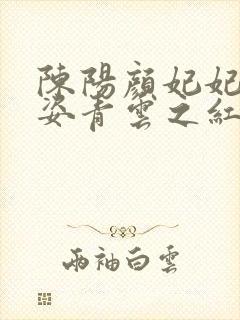 陳陽顏妃妃
姿青雲之紅
兩袖白雲